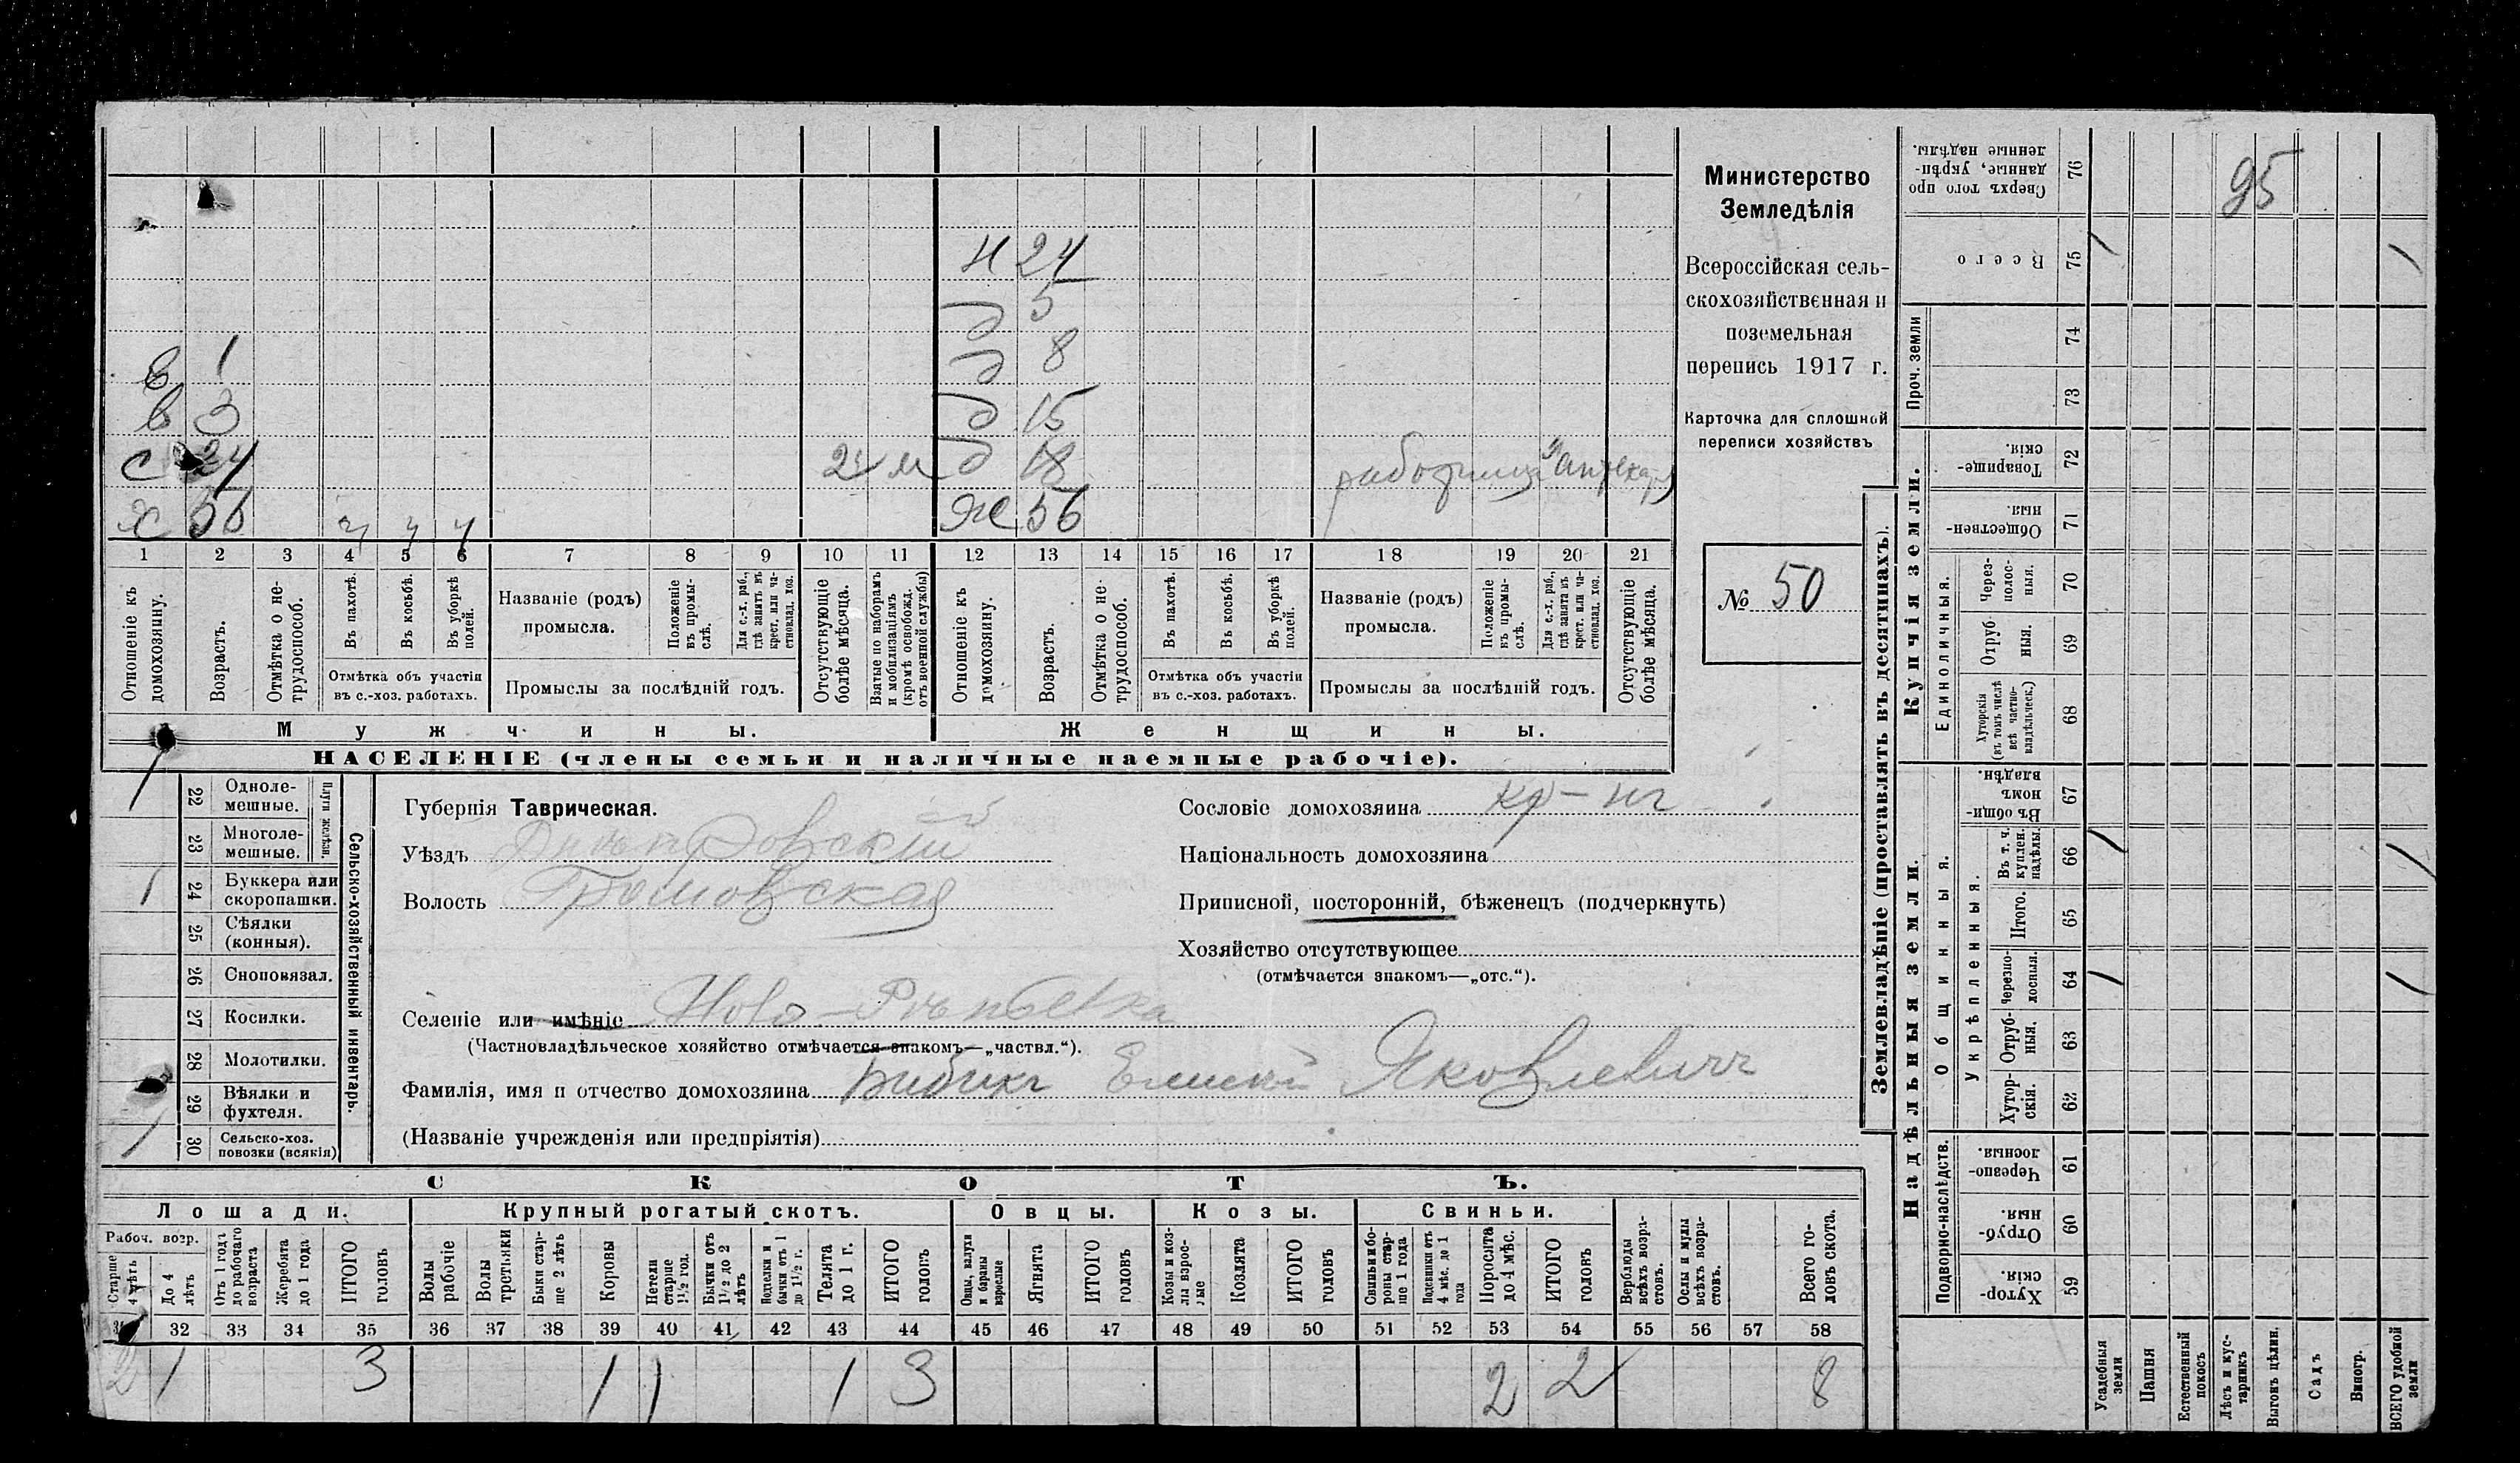 Министерство
Земледѣлія
Всероссійская сель-
скохозяйственная и
поземельная
перепись 1917 г.
Карточка для сплошной
переписи хозяйствъ
№ 50
Н 24
д 5
в 1 д 8
в 3 д 15
с 24 24 м д 18 работница
х 56 ч ч ч Же 56
1 2 3 4 5 6 7 8 9 10 11 12 13 14 15 16 17 18 19 20 21
Отношеніе къ домохозяину.
Возрастъ.
Отмѣтка о не-трудоспособ.
Въ пахотѣ.
Въ косьбѣ.
Въ уборкѣ полей.
Отмѣтка объ участіи
въ с.-хоз. работахъ.
Названіе (родъ)
промысла.
Положеніе въ промы-слѣ.
Для с.-х. раб., гдѣ занятъ въ крест. или ча-стновлад. хоз.
Промыслы за послѣдній годъ.
Отсутствующіе болѣе мѣсяца.
Взятые по наборамъ и мобилизаціямъ (кромѣ освобожд. отъ военной службы)
Отношеніе къ домохозяину.
Возрастъ.
Отмѣтка о не-трудоспособ.
Въ пахотѣ.
Въ косьбѣ.
Въ уборкѣ полей.
Отмѣтка объ участіи
въ с.-хоз. работахъ.
Названіе (родъ)
промысла.
Положеніе въ промы-слѣ.
Для с.-х. раб., гдѣ занята въ крест. или ча-стновлад. хоз.
Промыслы за послѣдній годъ.
Отсутствующіе болѣе мѣсяца.
Мужчины. Женщины.
НАСЕЛЕНІЕ (члены семьи и наличные наемные рабочіе).
Сельско-хозяйственный инвентарь.
Плуги желѣзн.
1 22 Одноле-мешные.
23 Многоле-мешные.
1 24 Буккера или скоропашки.
25 Сѣялки (конныя).
26 Сноповязал.
27 Косилки.
28 Молотилки.
29 Вѣялки и фухтеля.
1 30 Сельско-хоз. повозки (всякія)
Губернія Таврическая.
Уѣздъ Днѣпровскій
Волость Громовская
Селеніе или имѣніе Ново-Рѣпьевка
(Частновладѣльческое хозяйство отмѣчается знакомъ—„частвл.“).
Фамилія, имя и отчество домохозяина Бибикъ Елисей Яковлевичъ
(Названіе учрежденія или предпріятія)
Сословіе домохозяина кр-нъ
Національность домохозяина
Приписной, посторонній, бѣженецъ (подчеркнуть)
Хозяйство отсутствующее
(отмѣчается знакомъ—„отс.“).
СКОТЪ.
Лошади. Крупный рогатый скотъ. Овцы. Козы. Свиньи.
Рабоч. возр.
Старше 4 лѣтъ
До 4 лѣтъ
Отъ 1 годъ до рабочаго возраста
Жеребята до 1 года
ИТОГО головъ
Волы рабочіе
Волы третьяки
Быки стар-ше 2 лѣтъ
Коровы
Нетели старше 1½ год.
Бычки отъ 1½ до 2 лѣтъ
Подтелки и бычки отъ 1 до 1½ г.
Телята до 1 г.
ИТОГО головъ
Овцы, валухи и бараны взрослые
Ягнята
ИТОГО головъ
Козы и коз-лы взрос-лые
Козлята
ИТОГО головъ
Свиньи и бо-ровы стар-ше 1 года
Подсвинки отъ 4 мѣс. до 1 года
Поросята до 4 мѣс.
ИТОГО головъ
Верблюды всѣхъ возра-стовъ.
Ослы и мулы всѣхъ возра-стовъ.
Всего го-ловъ скота.
32 33 34 35 36 37 38 39 40 41 42 43 44 45 46 47 48 49 50 51 52 53 54 55 56 57 58
2 1 3 1 1 1 3 2 2 8
Землевладѣніе (проставлять въ десятинахъ).
Купчія земли.
Надѣльныя земли.
Сверхъ того про данные, укрѣп-ленные надѣлы. 76 95
Всего 75
Проч. земли 74
73
Товарище-скія. 72
Обществен-ныя. 71
Единоличныя.
Через-полос-ныя. 70
Отруб-ныя. 69
Хуторскія (въ томъ числѣ всѣ частно-владѣльческ.) 68
Общинныя.
Въ общи-номъ владѣн. 67
Укрѣпленныя.
Въ т. ч. куплен. надѣлы. 66
Итого. 65
Черезпо-лосныя. 64
Отруб-ныя. 63
Хутор-скія. 62
Подворно-наслѣдств.
Черезпо-лосныя. 61
Отруб-ныя. 60
Хутор-скія. 59
Усадебныя земли
Пашня
Естественный покосъ
Лѣсъ и кус-тарникъ
Выгонъ цѣлин.
Садъ
Виногр.
ВСЕГО удобной земли